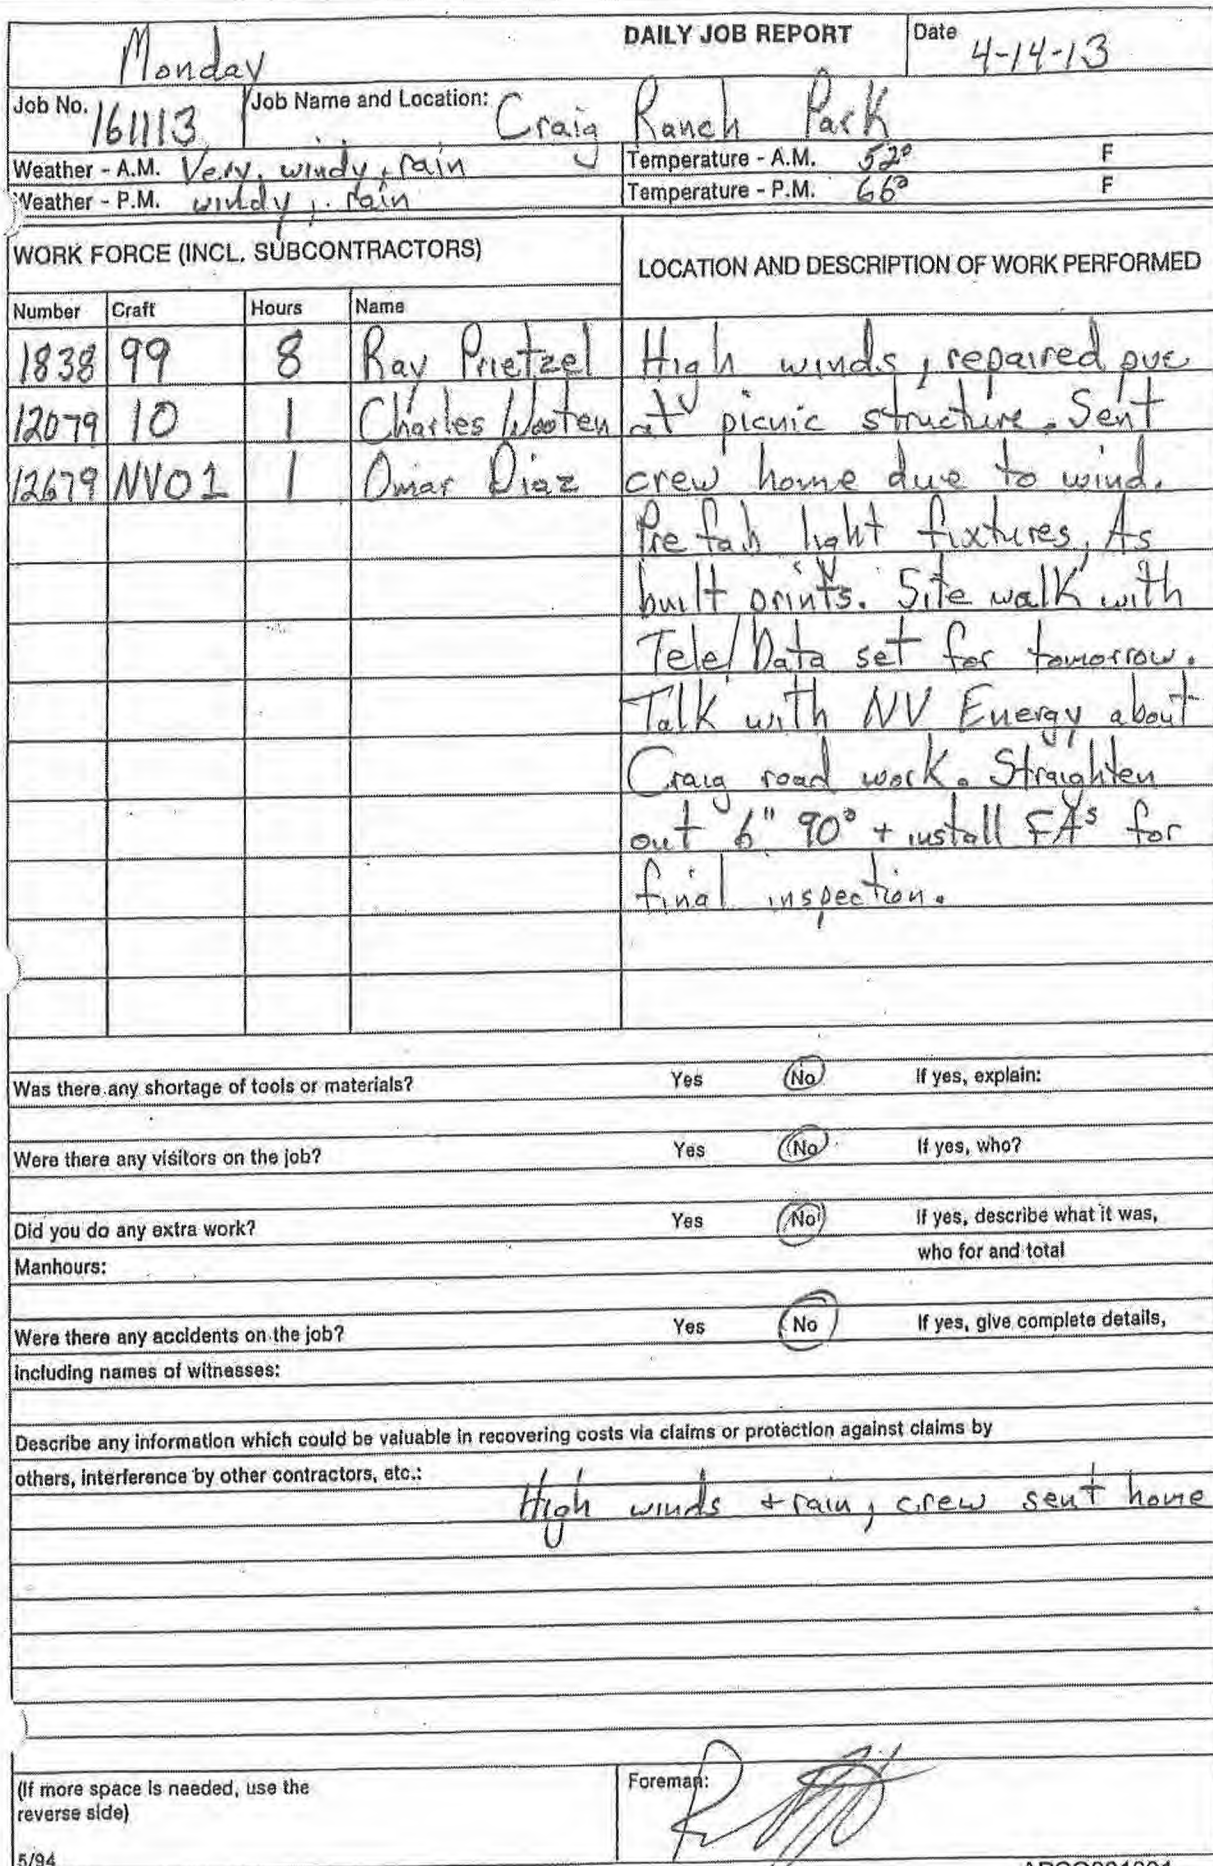 DAILY JOB REPORT Date
Monday 4-14-13
Job No. 161113 Job Name and Location: Craig Ranch Park
Weather - A.M. Very windy, rain Temperature - A.M. 52° F
Weather - P.M. windy, rain Temperature - P.M. 66° F
WORK FORCE (INCL. SUBCONTRACTORS) LOCATION AND DESCRIPTION OF WORK PERFORMED
Number Craft Hours Name
1838 99 8 Ray Prietzel High winds, repaired pvc
12079 10 1 Charles Wooten at picnic structure. Sent
12679 NV01 1 Omar Diaz crew home due to wind.
Pre fab light fixtures, As
built prints. Site walk with
Tele/Data set for tomorrow.
Talk with NV Energy about
Craig road work. Straighten
out 6" 90° + install FA's for
final inspection.
Was there any shortage of tools or materials? Yes No If yes, explain:
Were there any visitors on the job? Yes No If yes, who?
Did you do any extra work? Yes No If yes, describe what it was,
who for and total
Manhours:
Were there any accidents on the job? Yes No If yes, give complete details,
including names of witnesses:
Describe any information which could be valuable in recovering costs via claims or protection against claims by
others, interference by other contractors, etc.:
High winds + rain, crew sent home
(If more space is needed, use the Foreman:
reverse side)
5/94